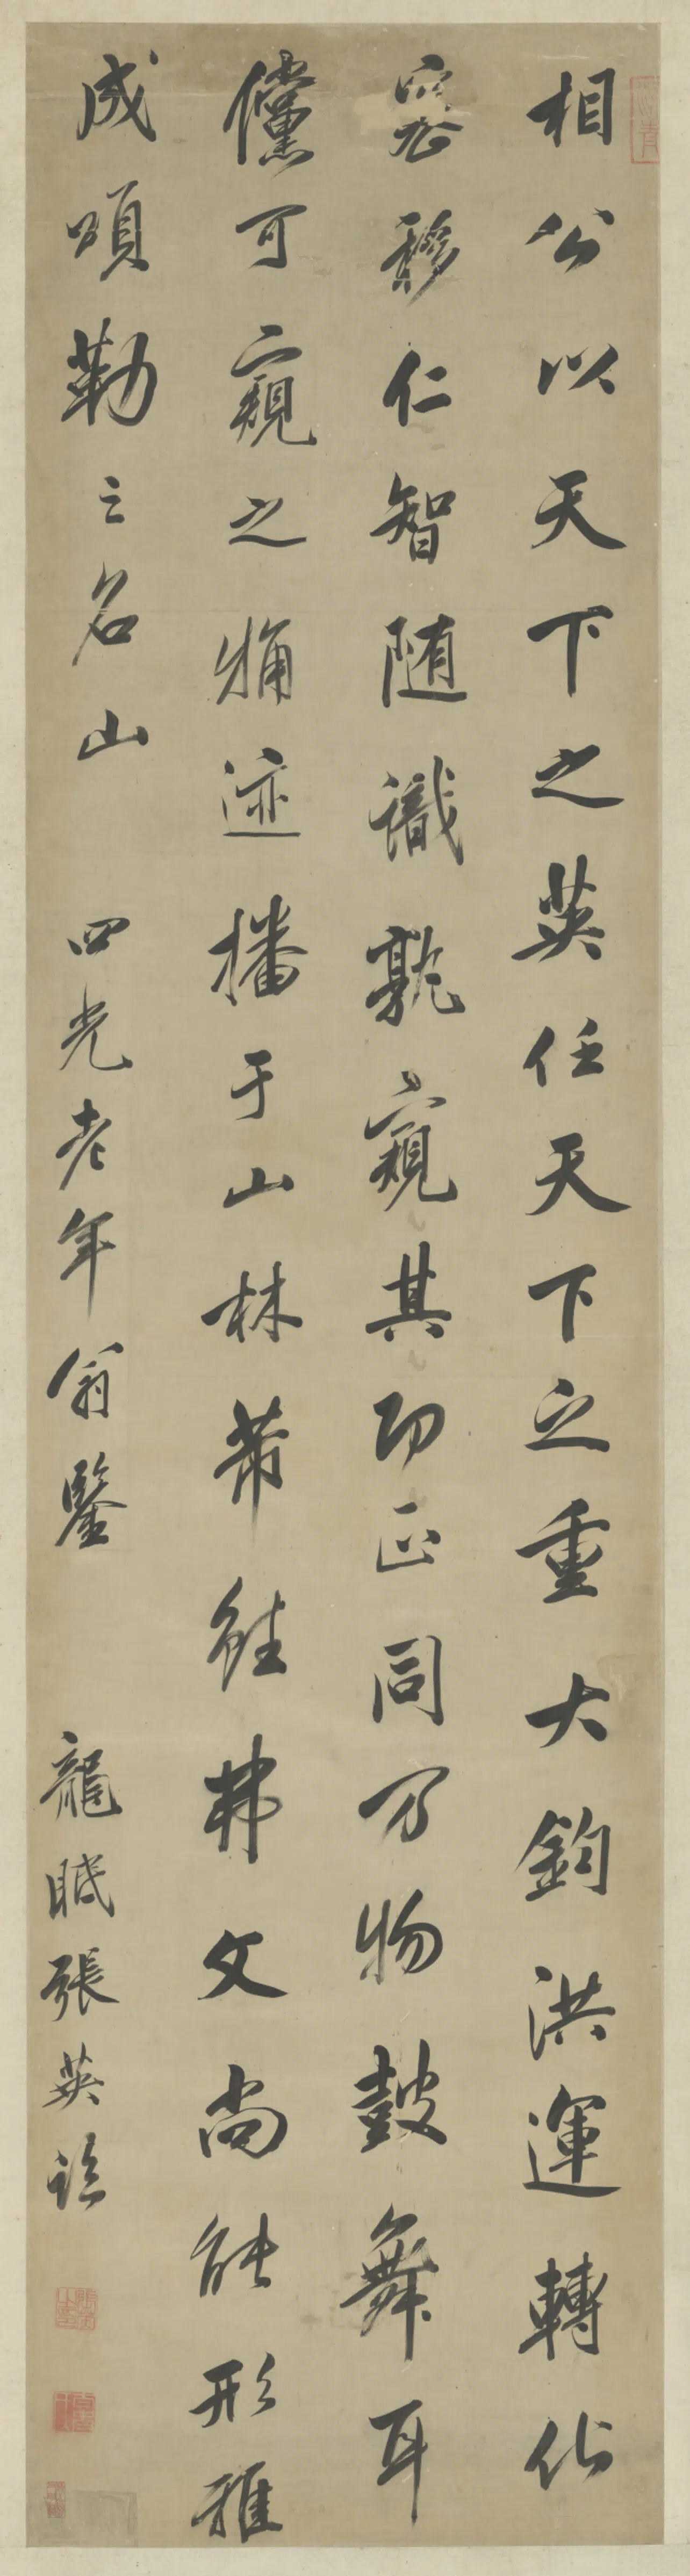 相公以天下之英任天下之重大鈞洪運轉化
密移仁智随識孰窺其功正同万物鼓舞耳
儻可窺之痡迹播于山林芾經弗文尚能形雅
成頌勒之名山 四光老年翁鑒 龍眠張英臨